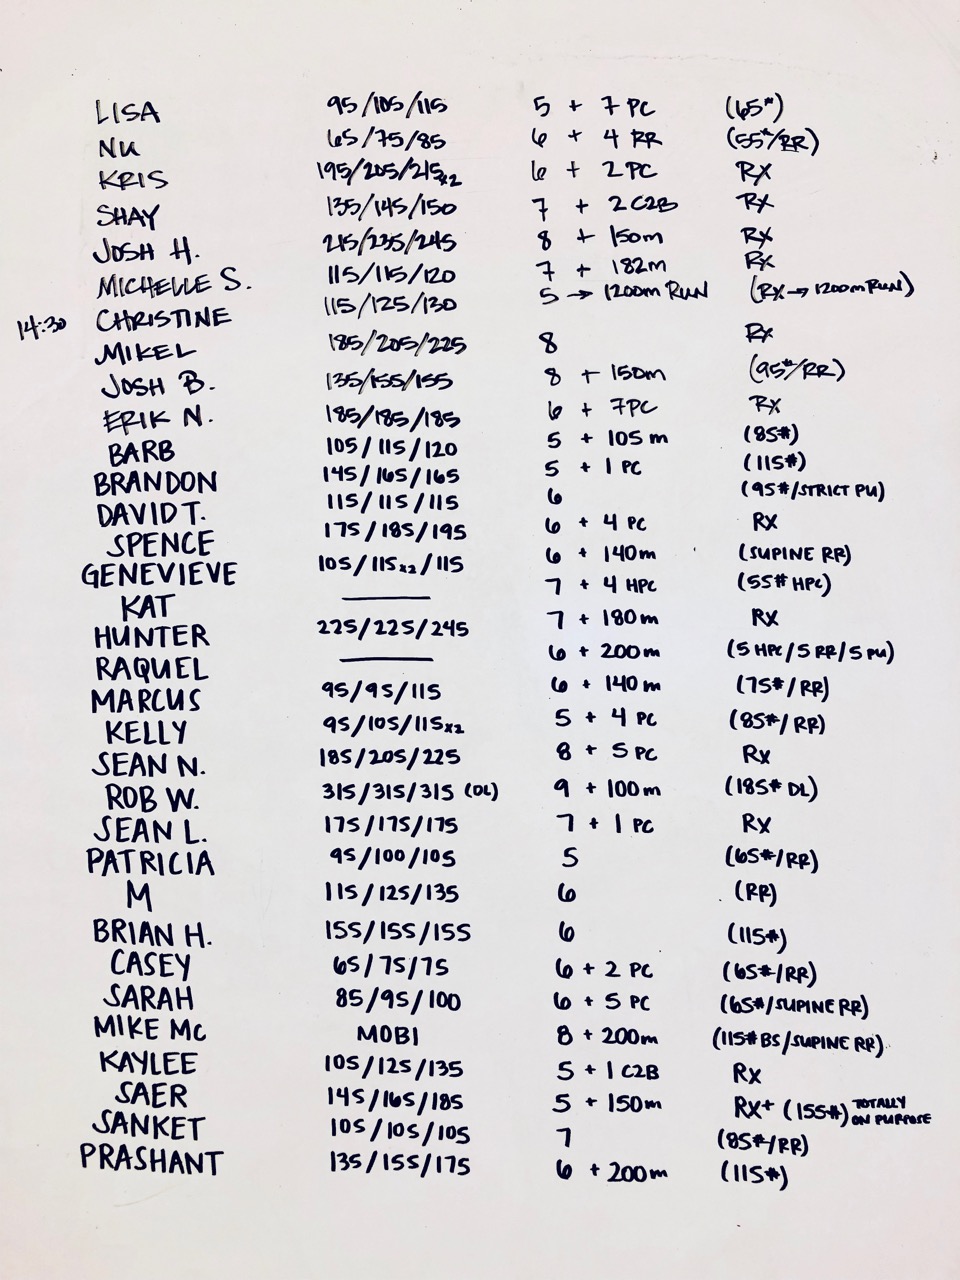 LISA 95/105/115 5 + 7 PC (65#)
NU 65/75/85 6 + 4 RR (55#/RR)
KRIS 195/205/215x2 6 + 2 PC RX
SHAY 135/145/150 7 + 2 C2B RX
JOSH H. 215/235/245 8 + 150m RX
MICHELLE S. 115/115/120 7 + 182m RX
14:30 CHRISTINE 115/125/130 5 → 1200m RUN (RX → 1200m RUN)
MIKEL 185/205/225 8 RX
JOSH B. 135/155/155 8 + 150m (95#/RR)
ERIK N. 185/185/185 6 + 7PC RX
BARB 105/115/120 5 + 105 m (85#)
BRANDON 145/165/165 5 + 1 PC (115#)
DAVID T. 115/115/115 6 (95#/STRICT PU)
SPENCE 175/185/195 6 + 4 PC RX
GENEVIEVE 105/115x2/115 6 + 140m (SUPINE RR)
KAT —— 7 + 4 HPC (55# HPC)
HUNTER 225/225/245 7 + 180m RX
RAQUEL —— 6 + 200m (5 HPC/5 RR/5 PU)
MARCUS 95/95/115 6 + 140m (75#/RR)
KELLY 95/105/115x2 5 + 4 PC (85#/RR)
SEAN N. 185/205/225 8 + 5 PC RX
ROB W. 315/315/315 (DL) 9 + 100m (185# DL)
SEAN L. 175/175/175 7 + 1 PC RX
PATRICIA 95/100/105 5 (65#/RR)
M 115/125/135 6 (RR)
BRIAN H. 155/155/155 6 (115#)
CASEY 65/75/75 6 + 2 PC (65#/RR)
SARAH 85/95/100 6 + 5 PC (65#/SUPINE RR)
MIKE MC MOBI 8 + 200m (115# BS/SUPINE RR)
KAYLEE 105/125/135 5 + 1 C2B RX
SAER 145/165/185 5 + 150m RX+ (155#) TOTALLY ON PURPOSE
SANKET 105/105/105 7 (85#/RR)
PRASHANT 135/155/175 6 + 200m (115#)